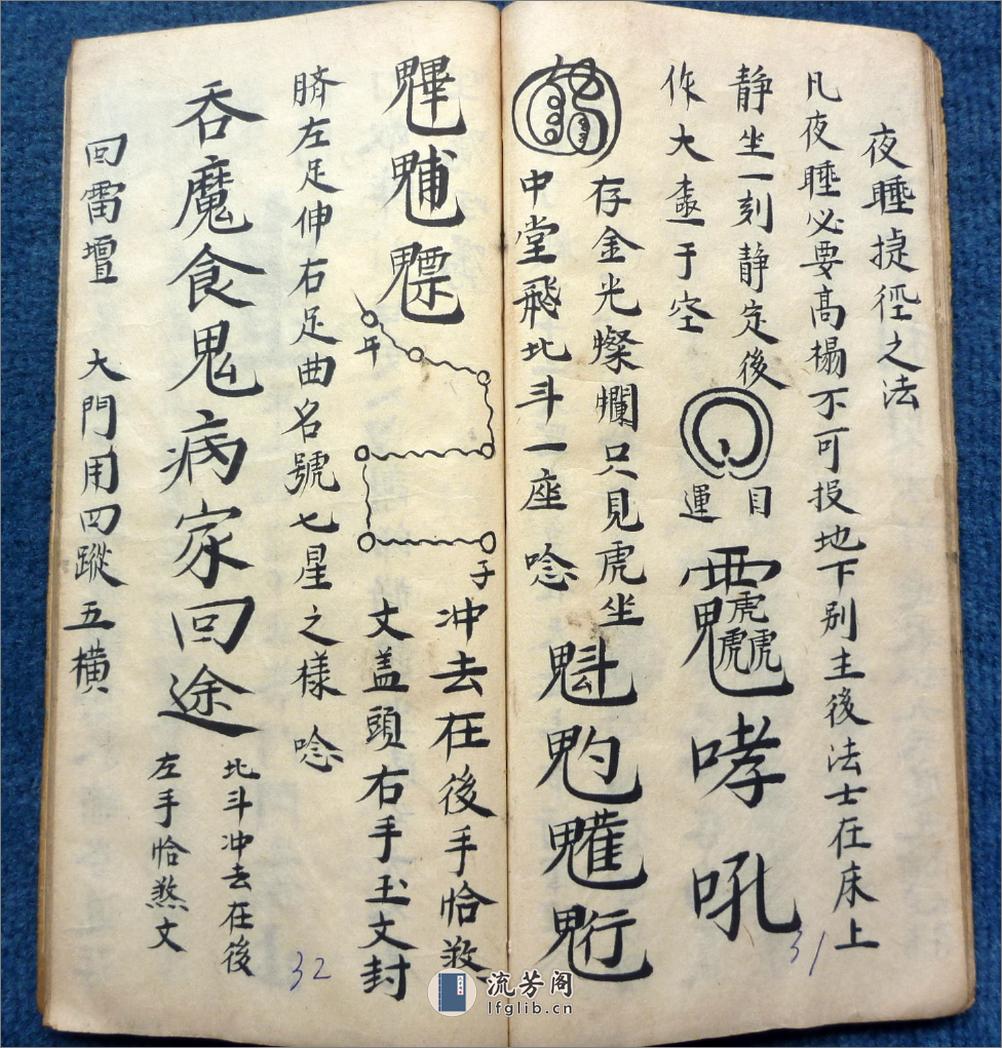 夜睡捷徑之法
凡夜睡必要高榻不可投地下别主後法士在床上
静坐一刻静定後
目
作大于空
運
哮吼
存金光燦爛只見虎坐
中堂飛北斗一座 唸 魁
魓魒
午
子
冲去在後手恰
文盖頭右手玉文封
臍左足伸右足曲名號七星之樣 唸
吞魔食鬼病家回途
北斗冲去在後
左手恰煞文
回雷壇 大門用四蹤五横
31
32
流芳阁
lfglib.cn